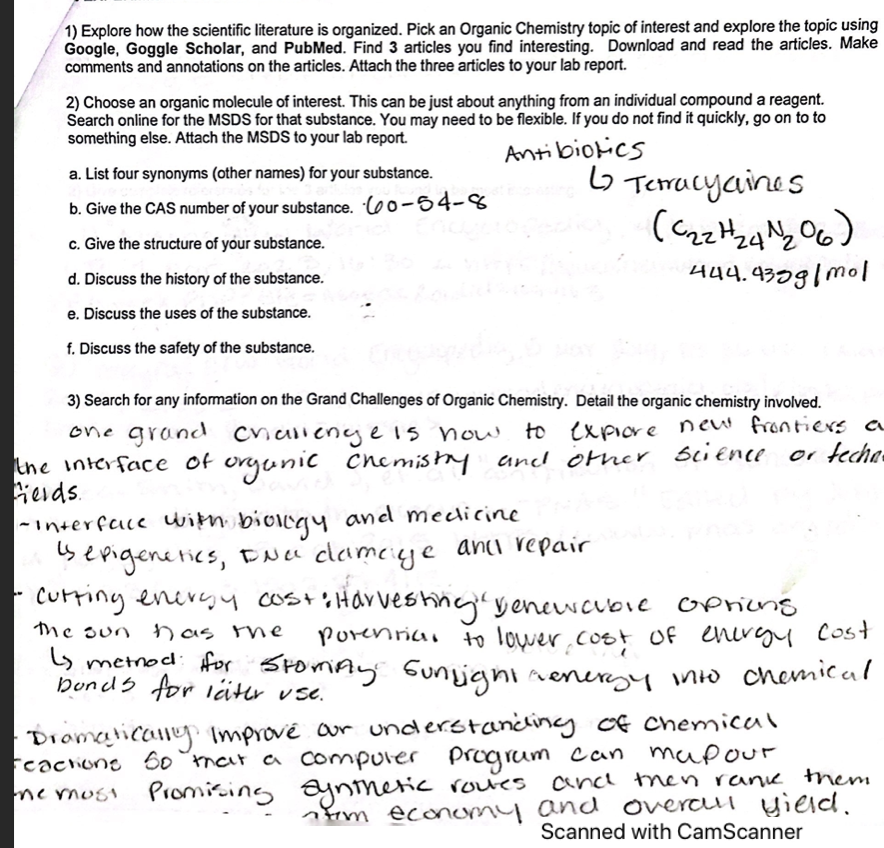 1) Explore how the scientific literature is organized. Pick an Organic Chemistry topic of interest and explore the topic using
Google, Goggle Scholar, and PubMed. Find 3 articles you find interesting. Download and read the articles. Make
comments and annotations on the articles. Attach the three articles to your lab report.
2) Choose an organic molecule of interest. This can be just about anything from an individual compound a reagent.
Search online for the MSDS for that substance. You may need to be flexible. If you do not find it quickly, go on to to
something else. Attach the MSDS to your lab report.
Antibiotics
a. List four synonyms (other names) for your substance.
↳ Tetracyclines
b. Give the CAS number of your substance. 60-54-8
(C22H24N2O6)
c. Give the structure of your substance.
444.435g/mol
d. Discuss the history of the substance.
e. Discuss the uses of the substance.
f. Discuss the safety of the substance.
3) Search for any information on the Grand Challenges of Organic Chemistry. Detail the organic chemistry involved.
one grand challenge is how to explore new frontiers a
the interface of organic chemistry and other science or techno
fields.
- interface with biology and medicine
↳ epigenetics, DNA damage and repair
- Cutting energy cost: Harvesting renewable options
The sun has the potential to lower cost of energy cost
↳ method: for storing sunlight energy into chemical
bonds for later use.
- Dramatically improve our understanding of chemical
reactions so that a computer program can map out
the most promising synthetic routes and then rank them
atom economy and overall yield.
Scanned with CamScanner